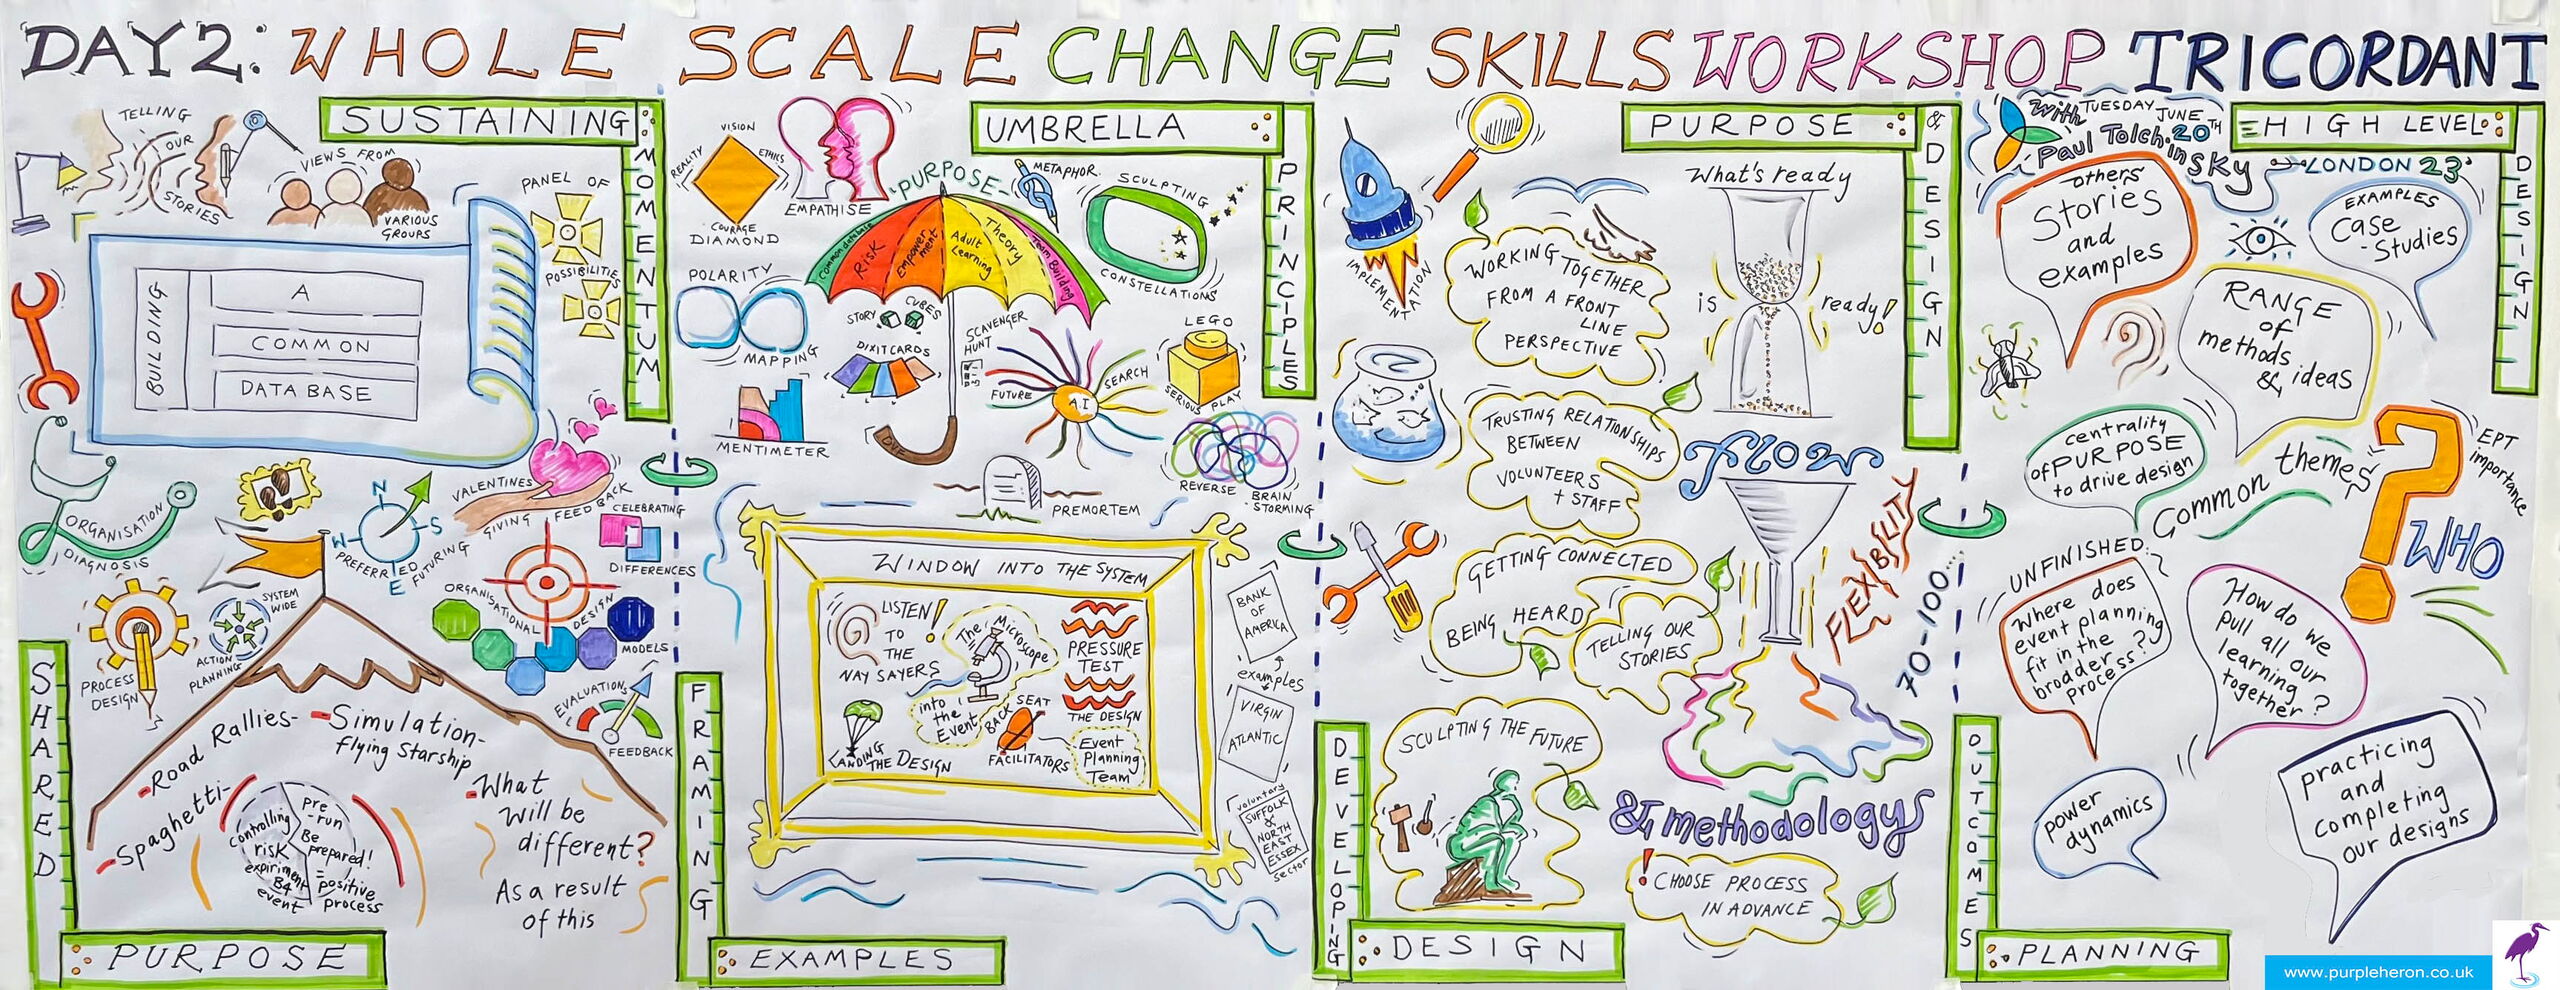 DAY 2: WHOLE SCALE CHANGE SKILLS WORKSHOP TRICORDANT
With TUESDAY JUNE 20TH
Paul Tolchinsky
LONDON 23'
SUSTAINING
MOMENTUM
TELLING
OUR
STORIES
VIEWS FROM
VARIOUS
GROUPS
PANEL OF
POSSIBILITIES
BUILDING
A
COMMON
DATA BASE
ORGANISATION
DIAGNOSIS
N
S
W
E
PREFERRED
FUTURING
VALENTINES
GIVING FEED BACK
CELEBRATING
DIFFERENCES
ORGANISATIONAL
DESIGN
MODELS
SYSTEM
WIDE
ACTION
PLANNING
PROCESS
DESIGN
EVALUATION
FEEDBACK
SHARED
PURPOSE
-Road Rallies-
-Simulation-
Flying Starship
-Spaghetti-
controlling
risk
expiriment
B4
event
Pre
-run
Be
prepared!
=positive
process
-What
will be
different?
As a result
of this
UMBRELLA
PRINCIPLES
VISION
REALITY
ETHICS
COURAGE
DIAMOND
EMPATHISE
PURPOSE-
METAPHOR
SCULPTING
CONSTELLATIONS
Common database
Risk
Empowerment
Adult
Learning
Theory
Team Building
DVF
POLARITY
MAPPING
STORY CUBES
DIXIT CARDS
SCAVENGER
HUNT
FUTURE
SEARCH
A.I
LEGO
SERIOUS PLAY
MENTIMETER
REVERSE BRAIN
STORMING
PREMORTEM
WINDOW INTO THE SYSTEM
LISTEN!
TO
THE
NAY SAYERS
The Microscope
into
the
Event
PRESSURE
TEST
THE DESIGN
LANDING
THE DESIGN
BACK SEAT
FACILITATORS
Event
Planning
Team
BANK
OF
AMERICA
examples
VIRGIN
ATLANTIC
voluntary
SUFFOLK
&
NORTH
EAST
ESSEX
sector
FRAMING
EXAMPLES
PURPOSE
& DESIGN
IMPLEMENTATION
WORKING TOGETHER
FROM A FRONT
LINE
PERSPECTIVE
What's ready
is ready!
TRUSTING RELATIONSHIPS
BETWEEN
VOLUNTEERS
+ STAFF
flow
FLEXIBILITY
70-100...
GETTING CONNECTED
BEING HEARD
TELLING OUR
STORIES
SCULPTING THE FUTURE
& methodology
! CHOOSE PROCESS
IN ADVANCE
DEVELOPING
DESIGN
HIGH LEVEL
DESIGN
others
Stories
and
examples
EXAMPLES
Case
-Studies
RANGE
OF
methods
& ideas
centrality
of PURPOSE
to drive design
Common themes
EPT
importance
WHO
UNFINISHED:
Where does
event planning
fit in the
broader
process?
How do we
pull all our
learning
together?
power
dynamics
practicing
and
completing
our designs
OUTCOMES
PLANNING
www.purpleheron.co.uk